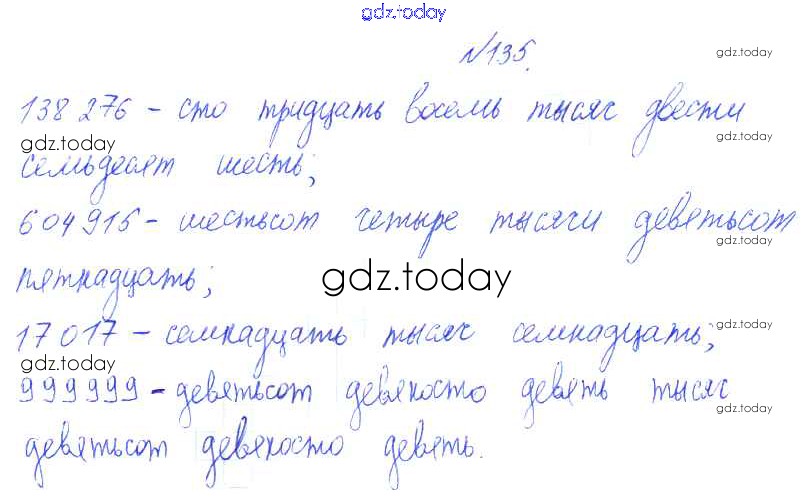 gdz.today
№135.
gdz.today
138 276 - сто тридцать восемь тысяч двести
gdz.today
gdz.today
семьдесят шесть;
604 915 - шестьсот четыре тысячи девятьсот
gdz.today
пятнадцать;
gdz.today
17 017 - семнадцать тысяч семнадцать;
gdz.today
gdz.today
999 999 - девятьсот девяносто девять тысяч
gdz.today
девятьсот девяносто девять.
gdz.today